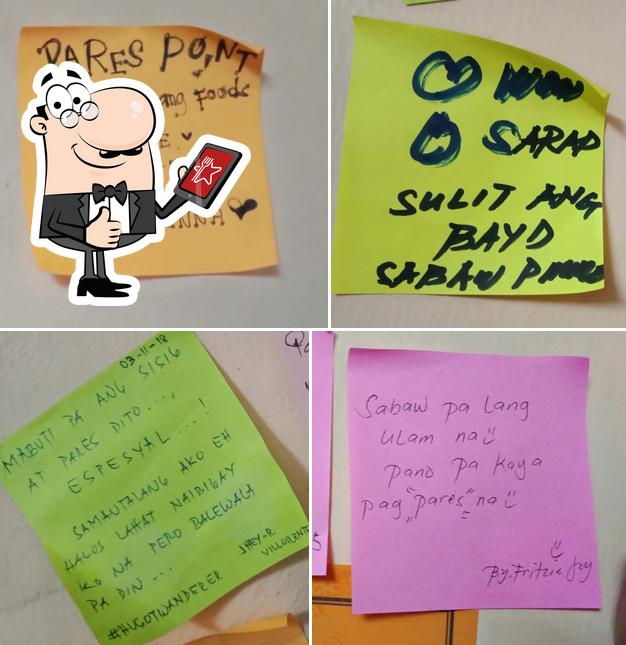 PARES POINT
ang Foods
E.
NNA
WOW
SARAP
SULIT ANG
BAYD
SABAW
03-11-18
MABUTI PA ANG SISIG
AT PARES DITO....,
ESPESYAL ....!
SAMANTALANG AKO EH
HALOS LAHAT NAIBIGAY
KO NA PERO BALEWALA
PA DIN ...
JHEY-R
VILLORENTE
#HUGOTWANDERER
Sabaw pa lang
ulam na
pano pa kaya
pag "pares" na
By: Fritzie Joy
5